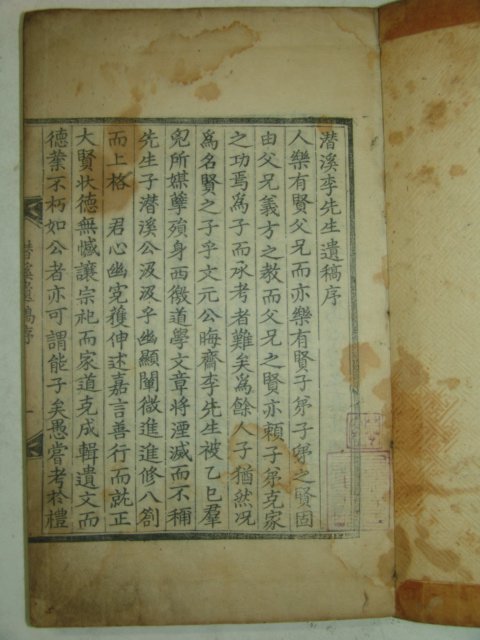 潜溪李先生遺稿序
人樂有賢父兄而亦樂有賢子弟子弟之賢固
由父兄義方之教而父兄之賢亦頼子弟克家
之功焉為子而承考者難矣為餘人子猶然况
為名賢之子乎文元公晦齋李先生被乙巳羣
兇所媒孽殞身西徼道學文章将湮滅而不稱
先生子潜溪公汲汲乎幽顯闡微進進修八劄
而上格 君心幽寃獲伸述嘉言善行而就正
大賢状德無憾讓宗祀而家道克成輯遺文而
德業不朽如公者亦可謂能子矣愚嘗考於禮
潜溪遺稿序
一